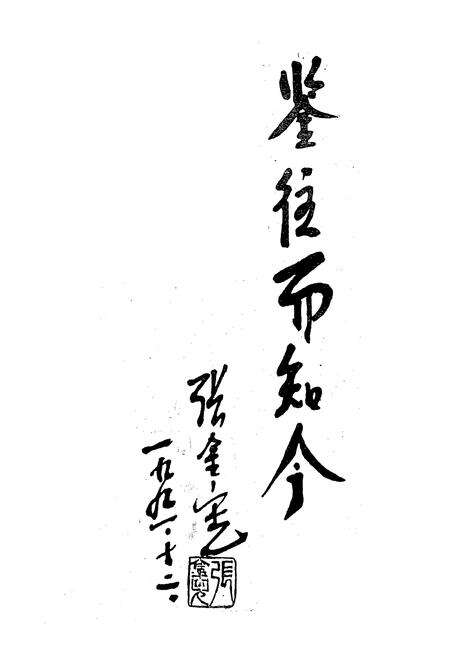 鉴往而知今
张金宪
一九九一·十二·
張